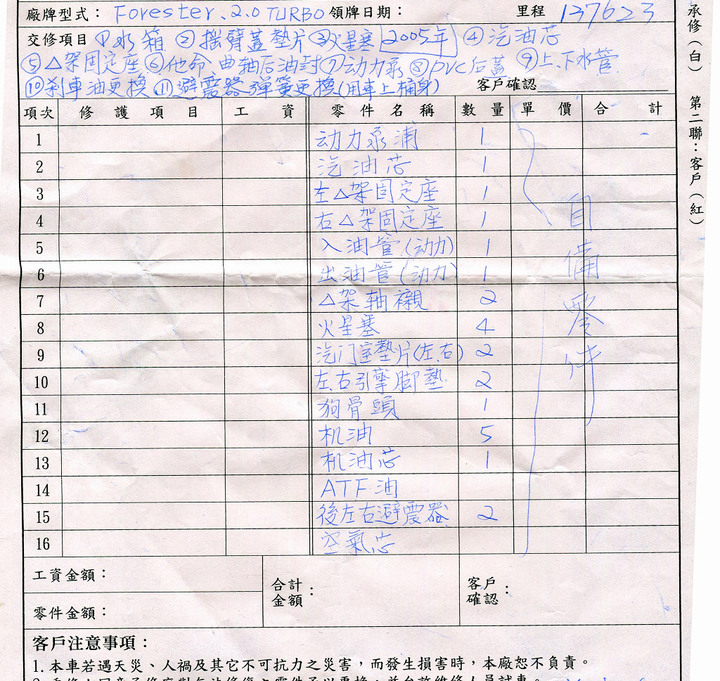 廠牌型式：Forester、2.0 TURBO 領牌日期： 里程 137623
交修項目 ①水箱 ②搖臂蓋墊片 ③火星塞 [2005年] ④汽油芯
⑤△架固定座 ⑥他命 曲軸后油封 ⑦动力泵 ⑧PVC后蓋 ⑨上、下水管
⑩刹車油更換 ⑪避震器彈簧更換(用車上桶身) 客戶確認
項次 修護項目 工資 零件名稱 數量 單價 合計
1 动力泵浦 1
2 汽油芯 1
3 左△架固定座 1
4 右△架固定座 1
5 入油管(动力) 1
6 出油管(动力) 1
7 △架軸襯 2
8 火星塞 4
9 汽门室墊片(左、右) 2
10 左、右引擎脚墊 2
11 狗骨頭 1
12 机油 5
13 机油芯 1
14 ATF油
15 後左右避震器 2
16 空氣芯
自備零件
工資金額：
零件金額：
合計金額：
客戶確認：
客戶注意事項：
1.本車若遇天災、人禍及其它不可抗力之災害，而發生損害時，本廠恕不負責。
承修(白) 第二聯：客戶(紅)